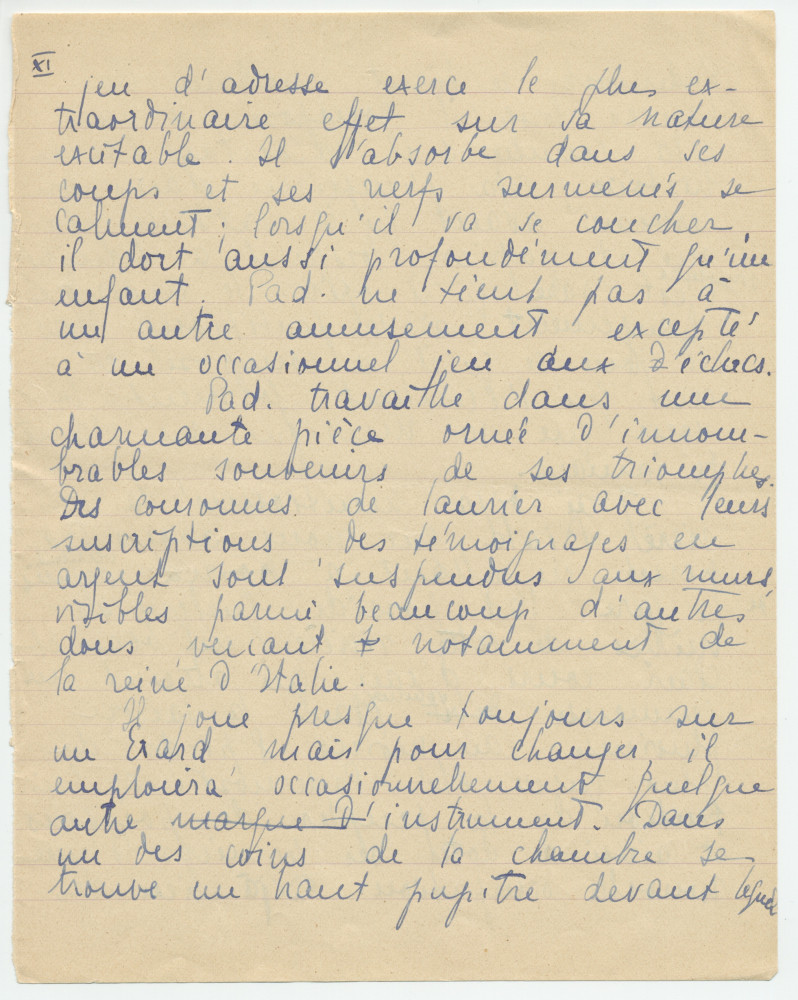 XI
jeu d'adresse exerce le plus ex-
traordinaire effet sur sa nature
excitable. Il s'absorbe dans ses
coups et ses nerfs surmenés se
calment ; lorsqu'il va se coucher,
il dort aussi profondément qu'un
enfant. Pad. ne tient pas à
un autre amusement excepté
à un occasionnel jeu aux d'échecs.
Pad. travaille dans une
charmante pièce ornée d'innom-
brables souvenirs de ses triomphes.
Des couronnes de laurier avec leurs
suscriptions, des témoignages en
argent sont suspendus aux murs,
visibles parmi beaucoup d'autres
dons venant notamment de
la reine d'Italie.
Il joue presque toujours sur
un Erard, mais pour changer, il
emploiera occasionnellement quelque
autre marque d'instrument. Dans
un des coins de la chambre se
trouve un haut pupitre devant lequel